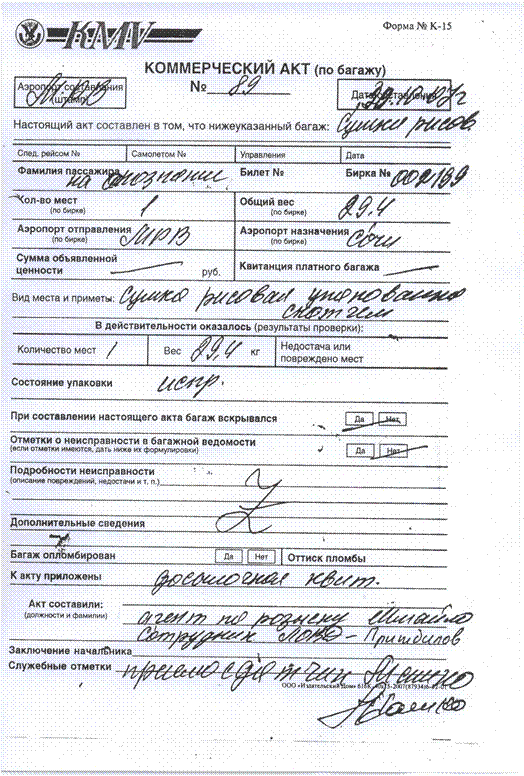 KMV
AVIA
Форма № К-15
КОММЕРЧЕСКИЙ АКТ (по багажу)
Аэропорт составления
(штамп)
МРВ
№ 89
Дата составления
Настоящий акт составлен в том, что нижеуказанный багаж: Сумка рисов
След. рейсом № Самолетом № Управления Дата
Фамилия пассажира на опознании Билет № Бирка № 002139
Кол-во мест 1 Общий вес 29,4
(по бирке) (по бирке)
Аэропорт отправления МРВ Аэропорт назначения Сочи
(по бирке) (по бирке)
Сумма объявленной
ценности руб. Квитанция платного багажа
Вид места и приметы: сумка рисовая упакована
скотчем
В действительности оказалось (результаты проверки):
Количество мест 1 Вес 29,4 кг Недостача или
повреждено мест
Состояние упаковки испр.
При составлении настоящего акта багаж вскрывался Да Нет
Отметки о неисправности в багажной ведомости Да Нет
(если отметки имеются, дать ниже их формулировки)
Подробности неисправности
(описание повреждений, недостачи и т. п.)
Z
Дополнительные сведения
Багаж опломбирован Да Нет Оттиск пломбы
К акту приложены досылочная квит.
Акт составили:
(должности и фамилии) агент по розыску
Сотрудник
Заключение начальника
Служебные отметки приемосдатчик